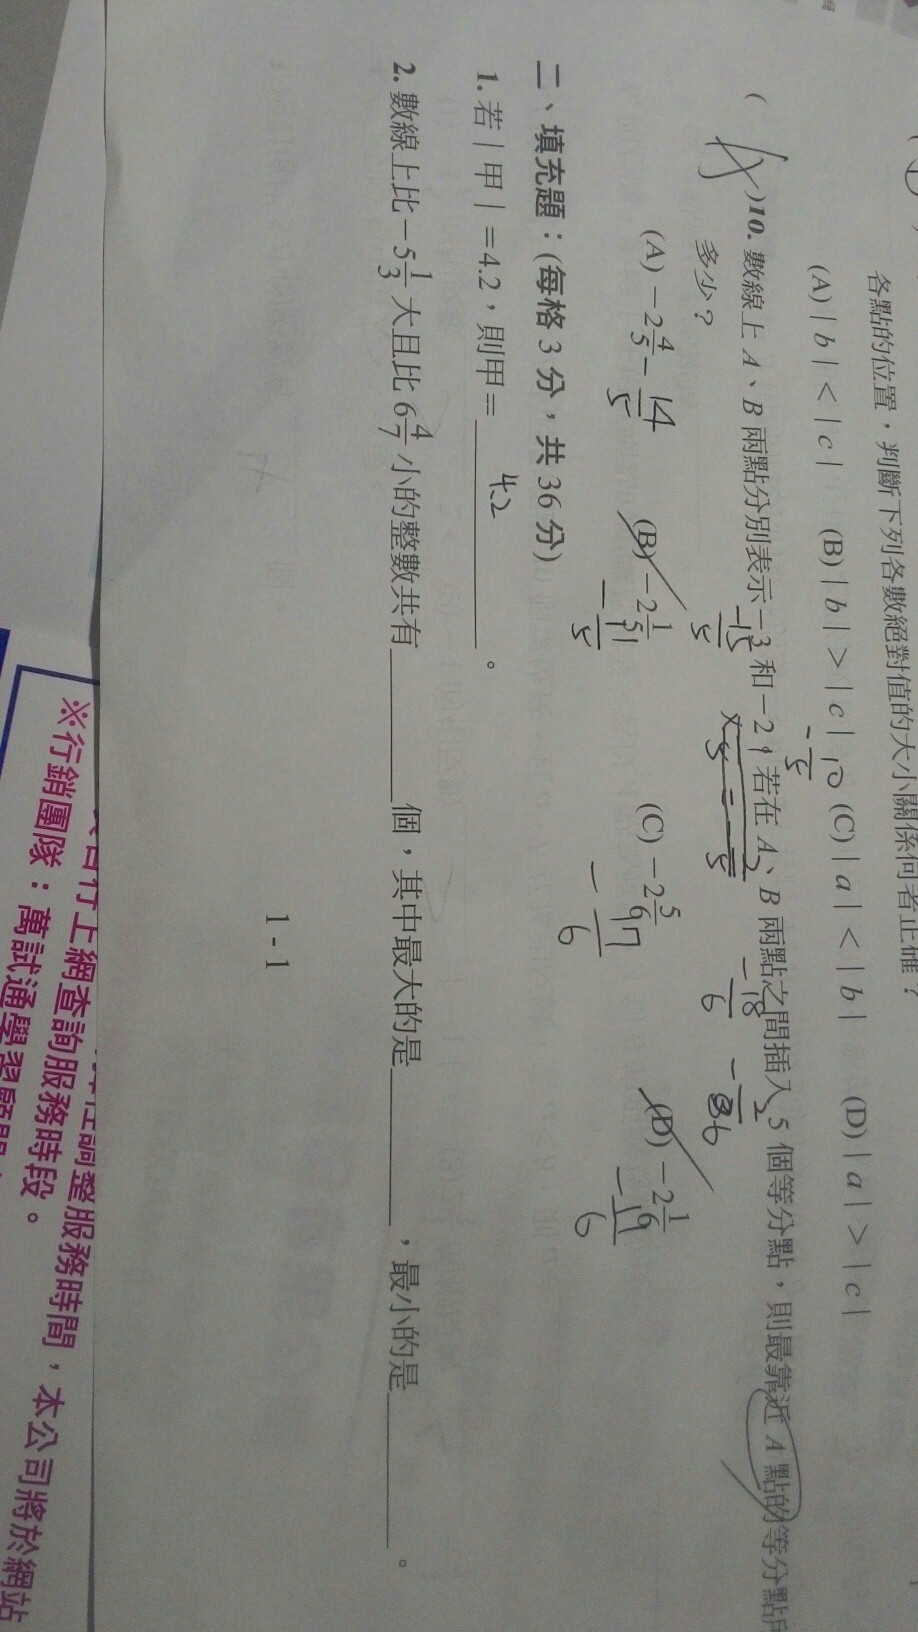 各點的位置，判斷下列各數絕對值的大小關係何者正確？
(A)|b|<|c| (B)|b|>|c| (C)|a|<|b| (D)|a|>|c|
( )10. 數線上 A、B 兩點分別表示−3 和−2，若在 A、B 兩點之間插入 5 個等分點，則最靠近 A 點的等分點
多少？
-15/5
-18/6
(A) −2 4/5 (B) −2 1/5 (C) −2 5/6 (D) −2 1/6
-14/5 -11/5 -17/6
二、填充題：(每格 3 分，共 36 分)
1. 若|甲|=4.2，則甲=4.2。
2. 數線上比−5 1/3 大且比 6 4/7 小的整數共有______個，其中最大的是______，最小的是______。
1 - 1
調整服務時間，本公司將於網站
行上網查詢服務時段。
※行銷團隊：萬試通學習顧問